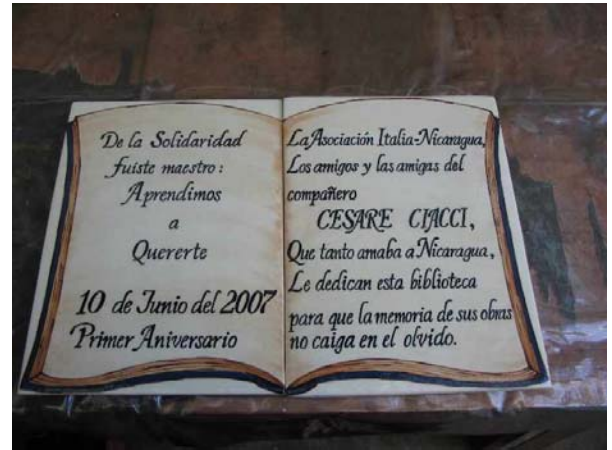 De la Solidaridad
fuiste maestro:
Aprendimos
a
Quererte
10 de Junio del 2007
Primer Aniversario
La Asociación Italia-Nicaragua,
Los amigos y las amigas del
compañero
CESARE CIACCI,
Que tanto amaba a Nicaragua,
Le dedican esta biblioteca
para que la memoria de sus obras
no caiga en el olvido.